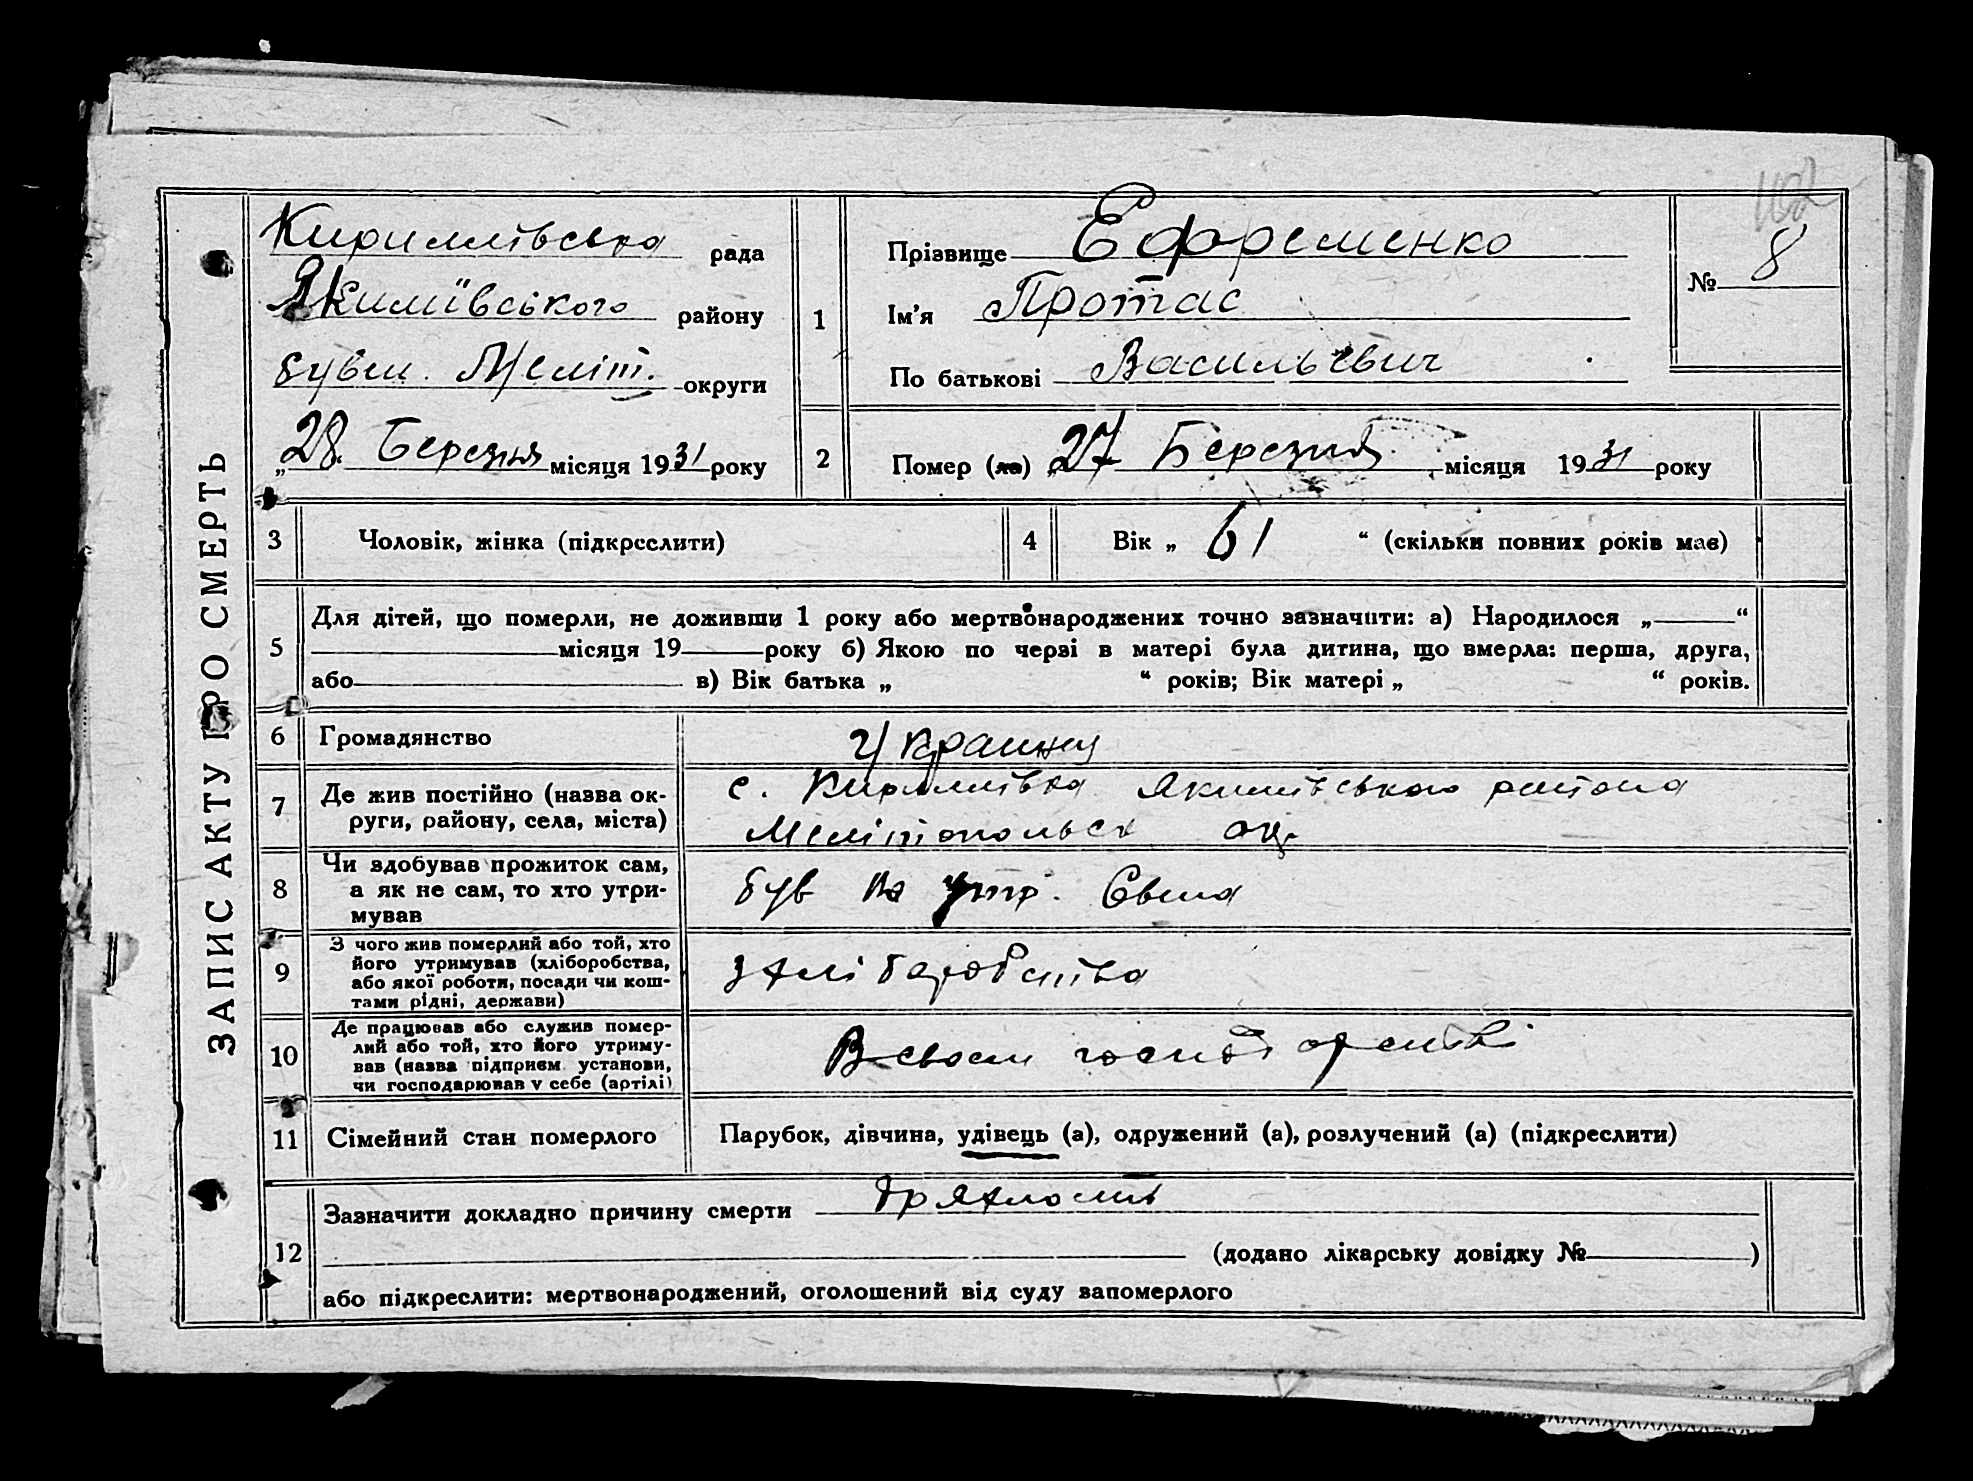 ЗАПИС АКТУ ПРО СМЕРТЬ
Кириллівська рада
Якимівського району
бувш. Меліт. округи
„28 Березня місяця 1931 року
1
Прізвище Ефременко
Ім'я Протас
По батькові Васильевич
№ 8
102
2
Помер (ла) „27 Березня місяця 1931 року
3 Чоловік, жінка (підкреслити)
4 Вік „ 61 “ (скільки повних років має)
5
Для дітей, що померли, не доживши 1 року або мертвонароджених точно зазначити: а) Народилося „ “
місяця 19 року б) Якою по черзі в матері була дитина, що вмерла: перша, друга,
або в) Вік батька „ “ років; Вік матері „ “ років.
6 Громадянство
Украинец
7
Де жив постійно (назва ок-
руги, району, села, міста)
с. Кириллівка Якимівського района
Мелітопольск ок.
8
Чи здобував прожиток сам,
а як не сам, то хто утри-
мував
був на утр. Сына
9
З чого жив померлий або той, хто
його утримував (хліборобства,
або якої роботи, посади чи кош-
тами рідні, держави)
З хліборобства
10
Де працював або служив помер-
лий або той, хто його утриму-
вав (назва підприєм. установи,
чи господарював у себе (артілі)
В своем господарстві
11 Сімейний стан померлого
Парубок, дівчина, удівець (а), одружений (а), розлучений (а) (підкреслити)
12
Зазначити докладно причину смерти дряхлость
(додано лікарську довідку № )
або підкреслити: мертвонароджений, оголошений від суду запомерлого